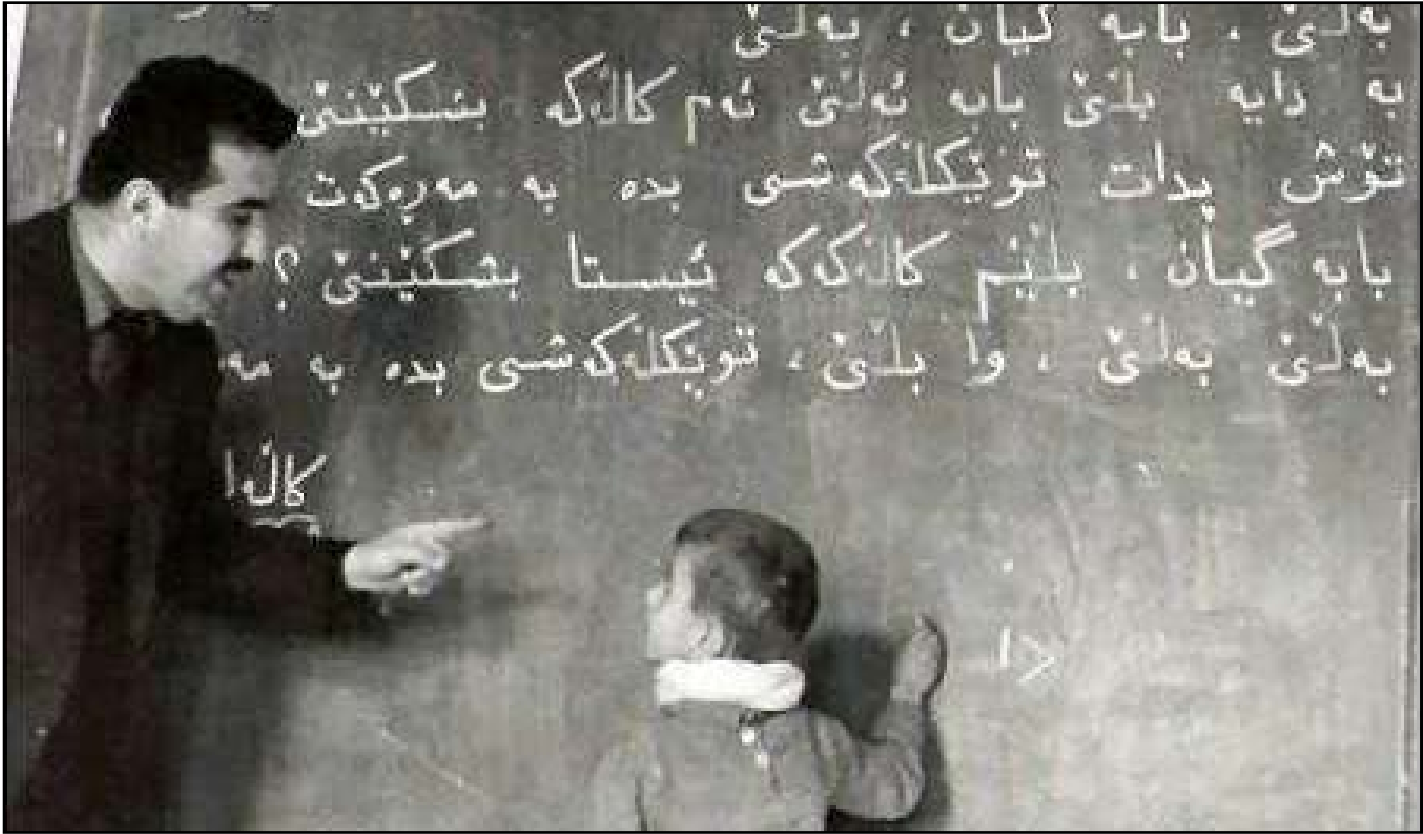 بەڵێ . بابە گیان ، بەڵێ
بە دایە بڵێ بابە ئەڵێ ئەم کاڵەکە بشکێنێ
تۆش بدات توێکڵەکەشی بدە بە مەڕەکەت
بابە گیان ، بڵێم کاڵەکەکە ئیستا بشکێنێ ؟
بەڵێ بەڵێ ، وا بڵێ ، توێکڵەکەشی بدە بە مە
دا